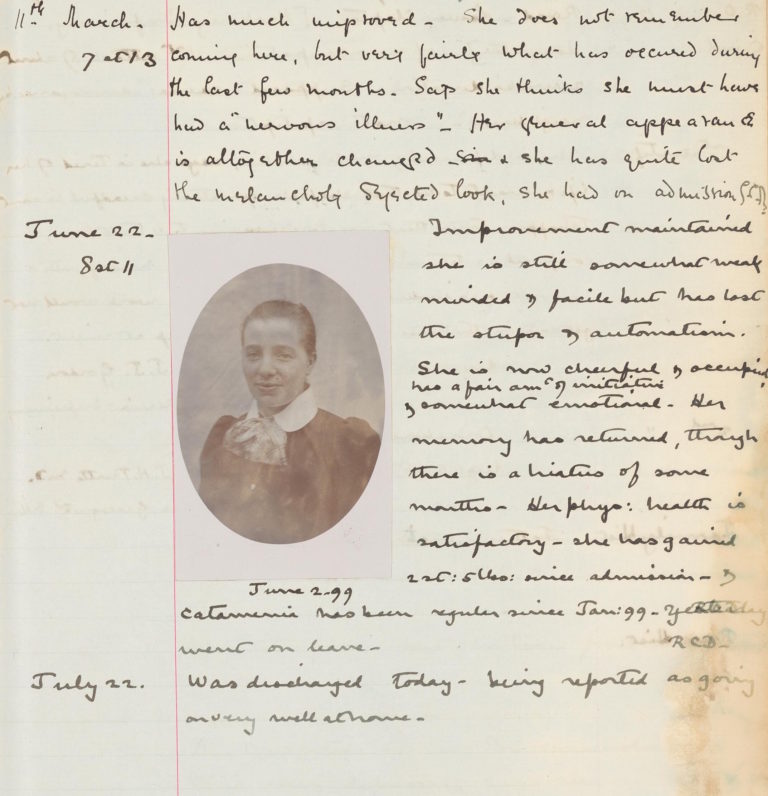 11th March. Has much improved - She does not remember
7 st 13 coming here, but very fairly what has occured during
the last few months. Says she thinks she must have
had a "nervous illness" - Her general appearance
is altogether changed & she has quite lost
the melancholy dejected look, she had on admission
June 22. Improvement maintained
8 st 11 she is still somewhat weak
minded & facile but has lost
the stupor & automatism.
She is now cheerful & occupied
has a fair amt of initiative
& somewhat emotional - Her
memory has returned, though
there is a hiatus of some
months - Her phys: health is
satisfactory - she has gained
2 st: 5 lbs: since admission - &
June 2-99
catamenia has been regular since Jan: 99 - Yesterday
went on leave - RCD-
July 22. Was discharged today - being reported as going
on very well at home -